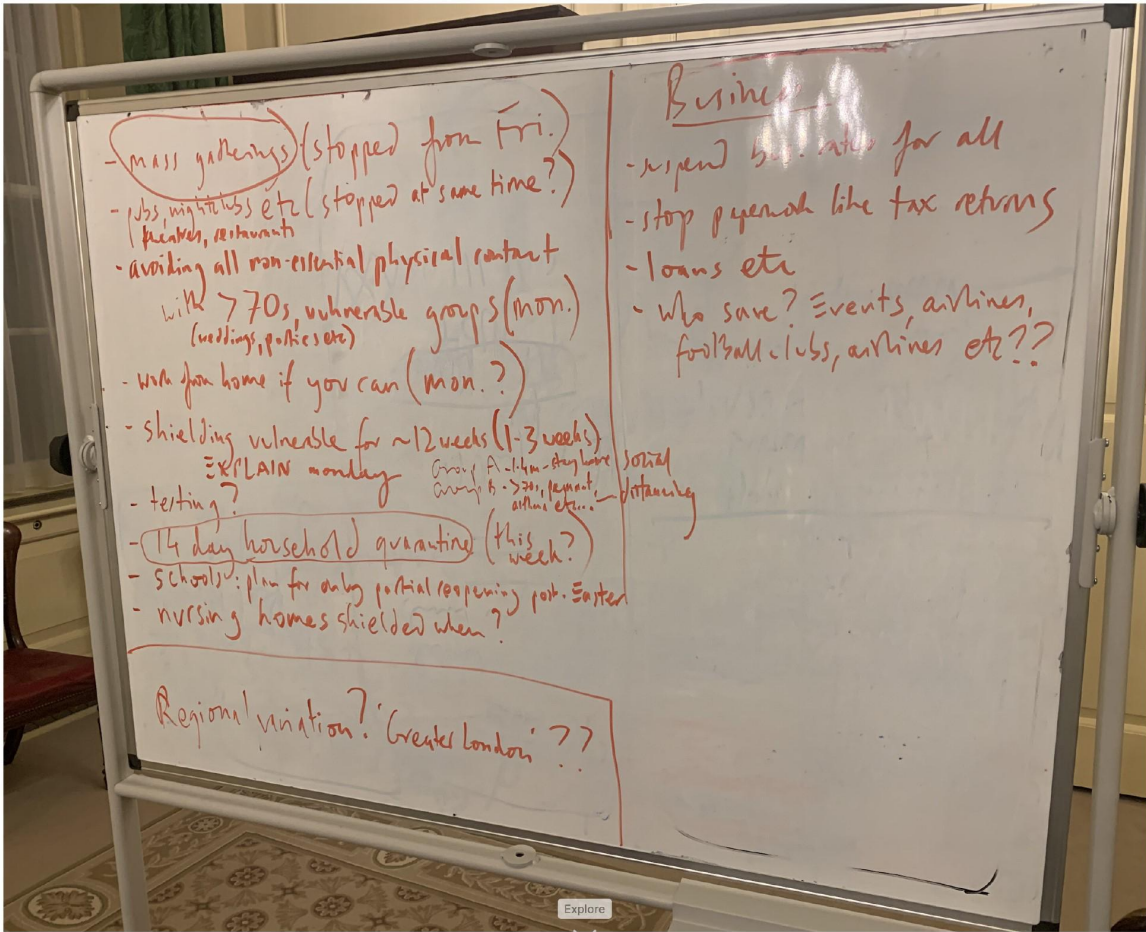 - mass gatherings (stopped from Fri.)
- pubs, nightclubs etc (stopped at same time?)
theatres, restaurants
- avoiding all non-essential physical contact
with >70s, vulnerable groups (mon.)
(weddings, parties etc)
- work from home if you can (mon.?)
- shielding vulnerable for ~12 weeks (1-3 weeks)
EXPLAIN monday
Group A - 1.4m - stay home
Group B - >70s, pregnant,
asthma etc...
social
distancing
- testing?
- 14 day household quarantine (this
week?)
- schools: plan for only partial reopening post-Easter
- nursing homes shielded when?
Regional variation? 'Greater London' ??
Business
- suspend bus. rates for all
- stop payments like tax returns
- loans etc
- who save? Events, airlines,
football clubs, airlines etc??
Explore